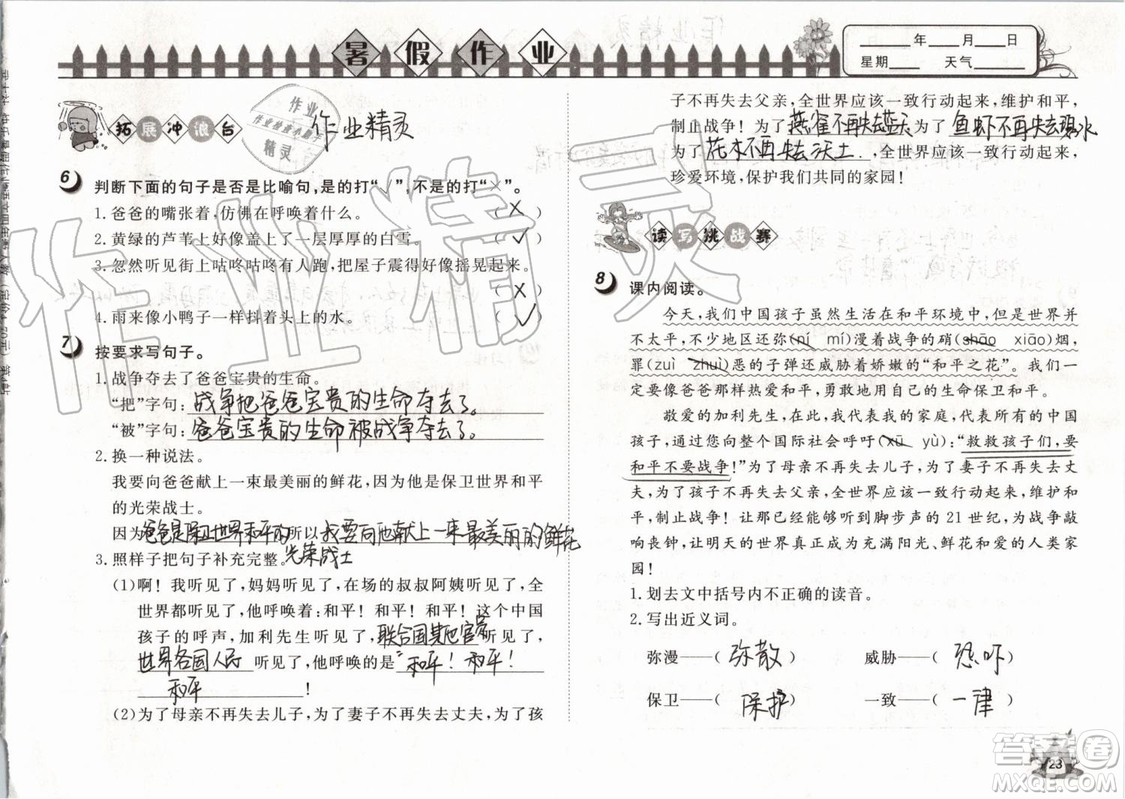 暑假作业
____年____月____日
星期____ 天气____
拓展冲浪台
作业精灵
6 判断下面的句子是否是比喻句,是的打“√”,不是的打“×”。
1.爸爸的嘴张着,仿佛在呼唤着什么。 (×)
2.黄绿的芦苇上好像盖上了一层厚厚的白雪。 (✓)
3.忽然听见街上咕咚咕咚有人跑,把屋子震得好像摇晃起来。
(×)
4.雨来像小鸭子一样抖着头上的水。 (✓)
7 按要求写句子。
1.战争夺去了爸爸宝贵的生命。
“把”字句:战争把爸爸宝贵的生命夺去了。
“被”字句:爸爸宝贵的生命被战争夺去了。
2.换一种说法。
我要向爸爸献上一束最美丽的鲜花,因为他是保卫世界和平
的光荣战士。
因为爸爸是保卫世界和平的所以我要向他献上一束最美丽的鲜花
光荣战士
3.照样子把句子补充完整。
(1)啊!我听见了,妈妈听见了,在场的叔叔阿姨听见了,全
世界都听见了,他呼唤着:和平!和平!和平!这个中国
孩子的呼声,加利先生听见了,联合国其他官员听见了,
世界各国人民听见了,他呼唤的是“和平!和平!
和平!
(2)为了母亲不再失去儿子,为了妻子不再失去丈夫,为了孩
子不再失去父亲,全世界应该一致行动起来,维护和平,
制止战争!为了燕雀不再失去蓝天为了鱼虾不再失去碧水
为了花木不再失去沃土,全世界应该一致行动起来,
珍爱环境,保护我们共同的家园!
读写挑战赛
8 课内阅读。
今天,我们中国孩子虽然生活在和平环境中,但是世界并
不太平,不少地区还弥(ní mí)漫着战争的硝(shāo xiāo)烟,
罪(zuì zhuì)恶的子弹还威胁着娇嫩的“和平之花”。我们一
定要像爸爸那样热爱和平,勇敢地用自己的生命保卫和平。
敬爱的加利先生,在此,我代表我的家庭,代表所有的中国
孩子,通过您向整个国际社会呼吁(xū yù):“救救孩子们,要
和平不要战争!为了母亲不再失去儿子,为了妻子不再失去丈
夫,为了孩子不再失去父亲,全世界应该一致行动起来,维护和
平,制止战争!让那已经能够听到脚步声的21世纪,为战争敲
响丧钟,让明天的世界真正成为充满阳光、鲜花和爱的人类家
园!
1.划去文中括号内不正确的读音。
2.写出近义词。
弥漫——(弥散) 威胁——(恐吓)
保卫——(保护) 一致——(一律)
23
答案圈
MXQE.COM